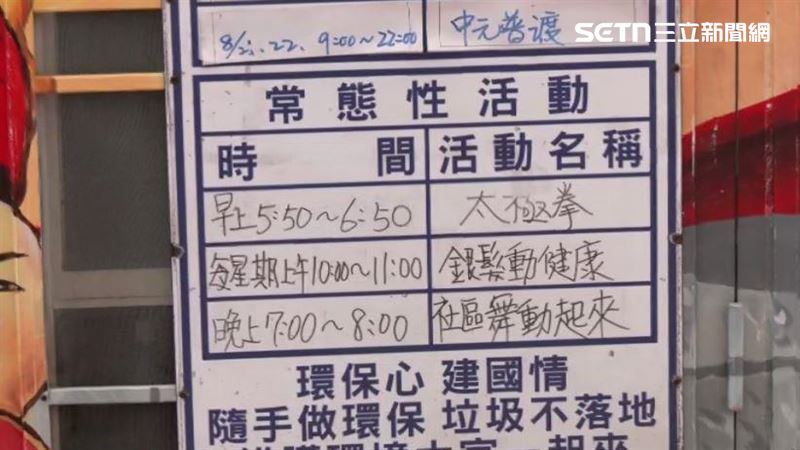 SETN三立新聞網
8/21、22、9:00~22:00 中元普渡
常態性活動
時間 活動名稱
早上5:50~6:50 太極拳
每星期上午10:00~11:00 銀髮動健康
晚上7:00~8:00 社區舞動起來
環保心 建國情
隨手做環保 垃圾不落地
環境大家一起來